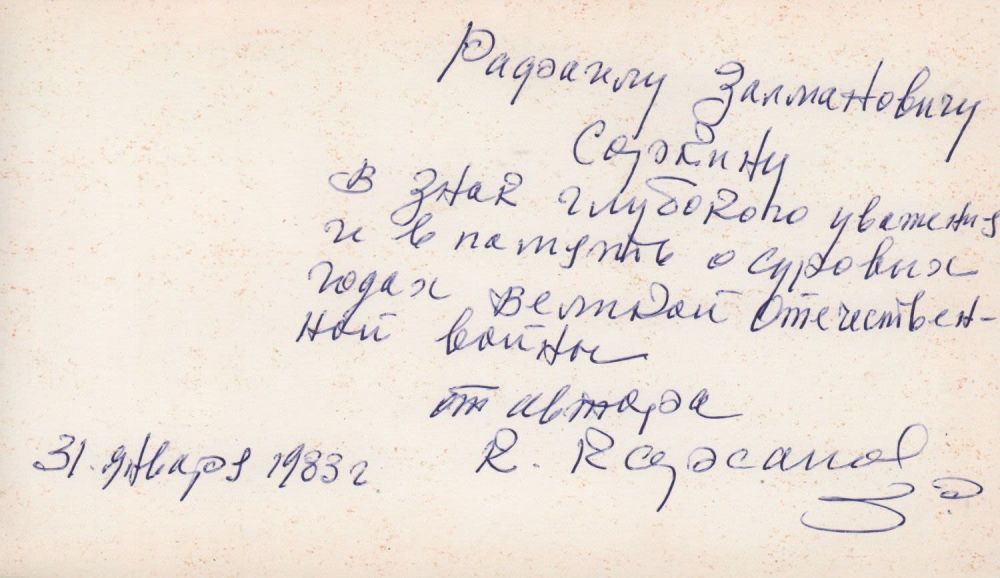 Рафаилу Залмановичу
Соркину
В знак глубокого уважения
и в память о суровых
годах Великой Отечествен-
ной войны
от автора
К.
31 января 1983 г.